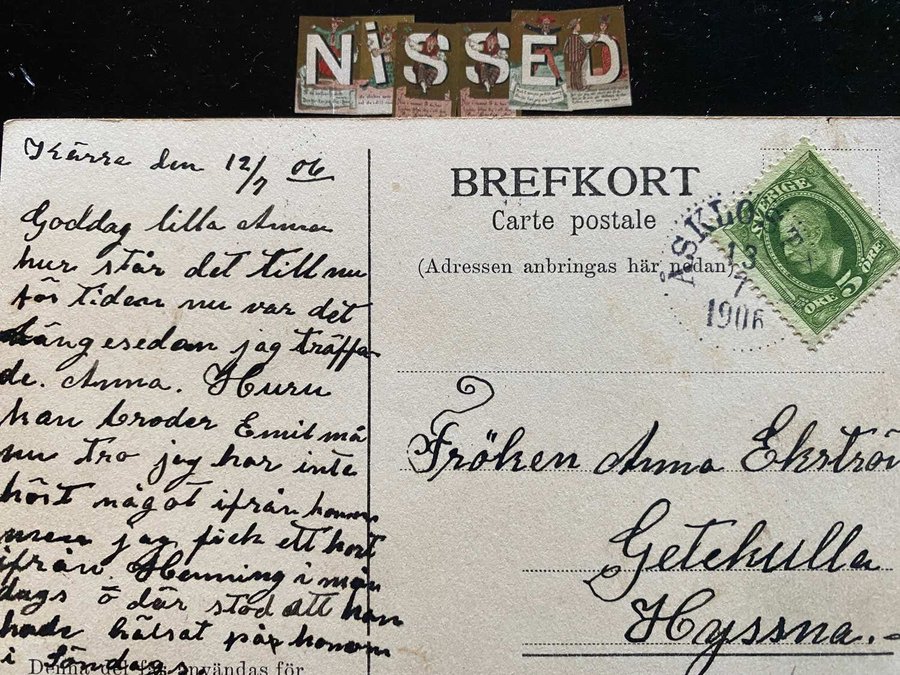 NiSSED
Kärra den 12/7 06
Goddag lilla Anna
hur står det till nu
för tiden nu var det
längesedan jag träffa
de. Anna. Huru
kan broder Emil må
nu tro jag har inte
hört något ifrån honom
men jag fick ett kort
ifrån Henning i mån
dags ö där stod att han
hade hälsat på honom
i Söndags.
Denna del får användas för
BREFKORT
Carte postale
(Adressen anbringas här nedan)
ÅSKLOST
13
7
1906
SVERIGE
5
ÖRE
ÖRE
Fröken Anna Ekströ
Getekulla
Hyssna.-